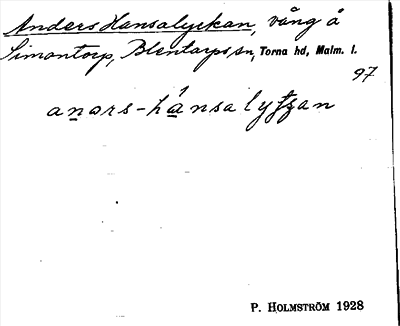 Anders Hansalyckan, vång å
Simontorp, Blentarps sn, Torna hd, Malm. l.
97
anars-hánsalytʒan
P. HOLMSTRÖM 1928